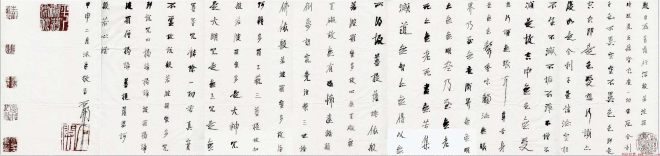 觀自在菩薩行深般若波羅蜜
多時照見五蘊皆空度一切苦厄舍利
子色不異空空不異色色即是
空空即是色受想行識亦復
如是舍利子是諸法空相
不生不滅不垢不淨不增不
減是故空中無色無受
想行識無眼耳鼻舌身
意無色聲香味觸法無眼
界乃至無意識界無無明
亦無無明盡乃至無老
死亦無老死盡無苦集
滅道無智亦無得以無
所得故菩提薩埵依般
若波羅蜜多故心無罣礙
無罣礙故無有恐怖遠離顛
倒夢想究竟涅槃三世諸
佛依般若波羅蜜多故得
阿耨多羅三藐三菩提故知
般若波羅蜜多是大神咒
是大明咒是無上咒是
無等等咒能除一切苦真實
不虛故說般若波羅蜜多咒
即說咒曰揭諦揭諦波羅揭諦
波羅僧揭諦菩提薩婆訶
般若心經
甲申二月